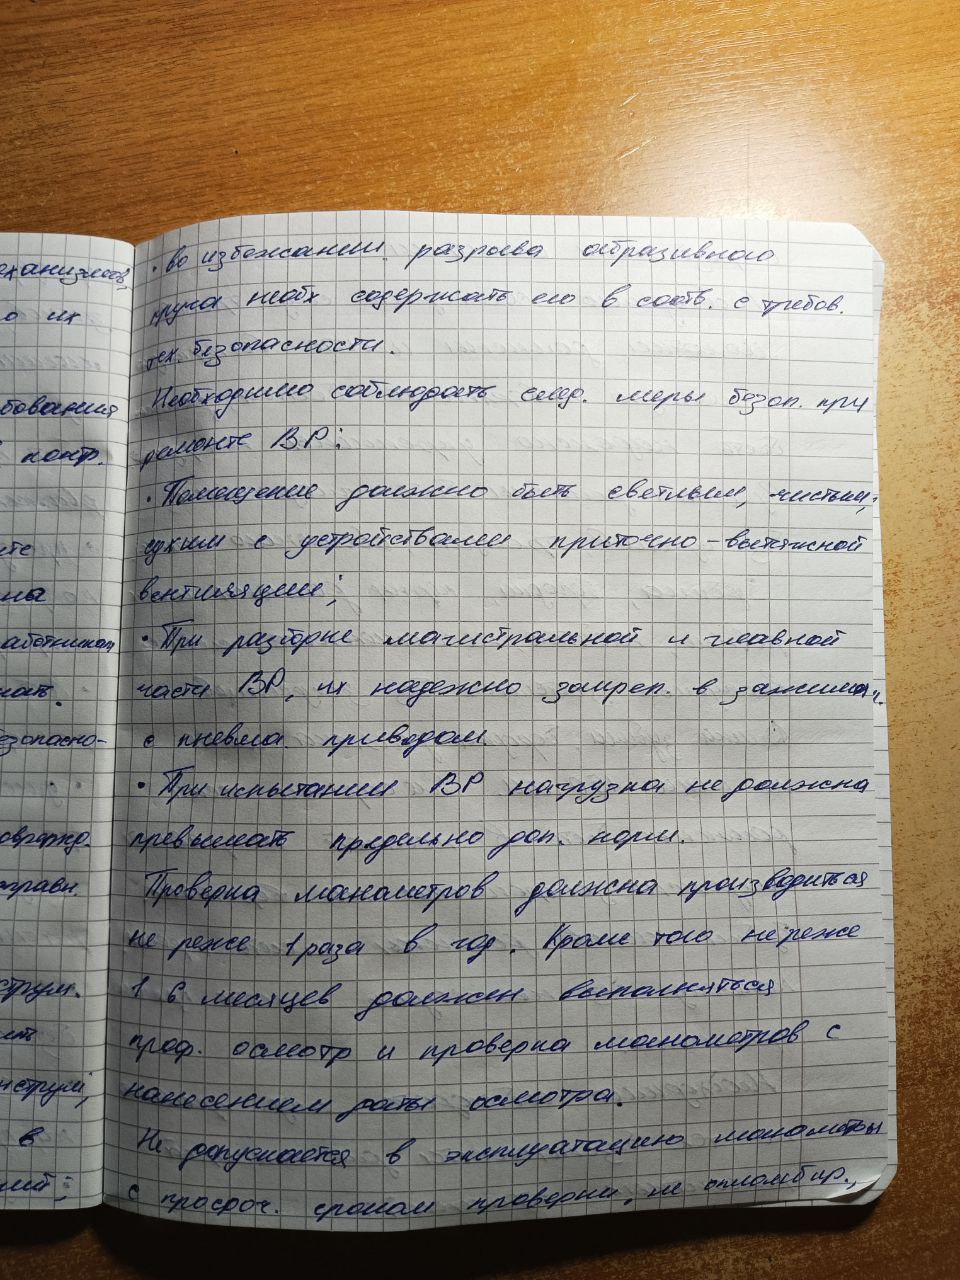 еханизмов,
о их
бования
контр.
ны
аботникам
езопасно-
струм.
нструм;
в
• во избежании разрыва абразивного
круга необх содержать его в соотв. с требов.
тех. безопасности.
Необходимо соблюдать след. меры безоп. при
ремонте ВР:
• Помещение должно быть светлым, чистым,
сухим с устройствами приточно-вытяжной
вентиляции;
• При разборке магистральной и главной
части ВР, их надежно закреп. в зажимах
с пневма. приводом.
• При испытании ВР нагрузка не должна
превышать предельно доп. норм.
Проверка манометров должна производиться
не реже 1 раза в год. Кроме того не реже
1 6 месяцев должен выполняться
проф. осмотр и проверка манометров с
нанесением даты осмотра.
Не допускается в эксплуатацию манометры
с просроч. сроком проверки, не опломбир.,